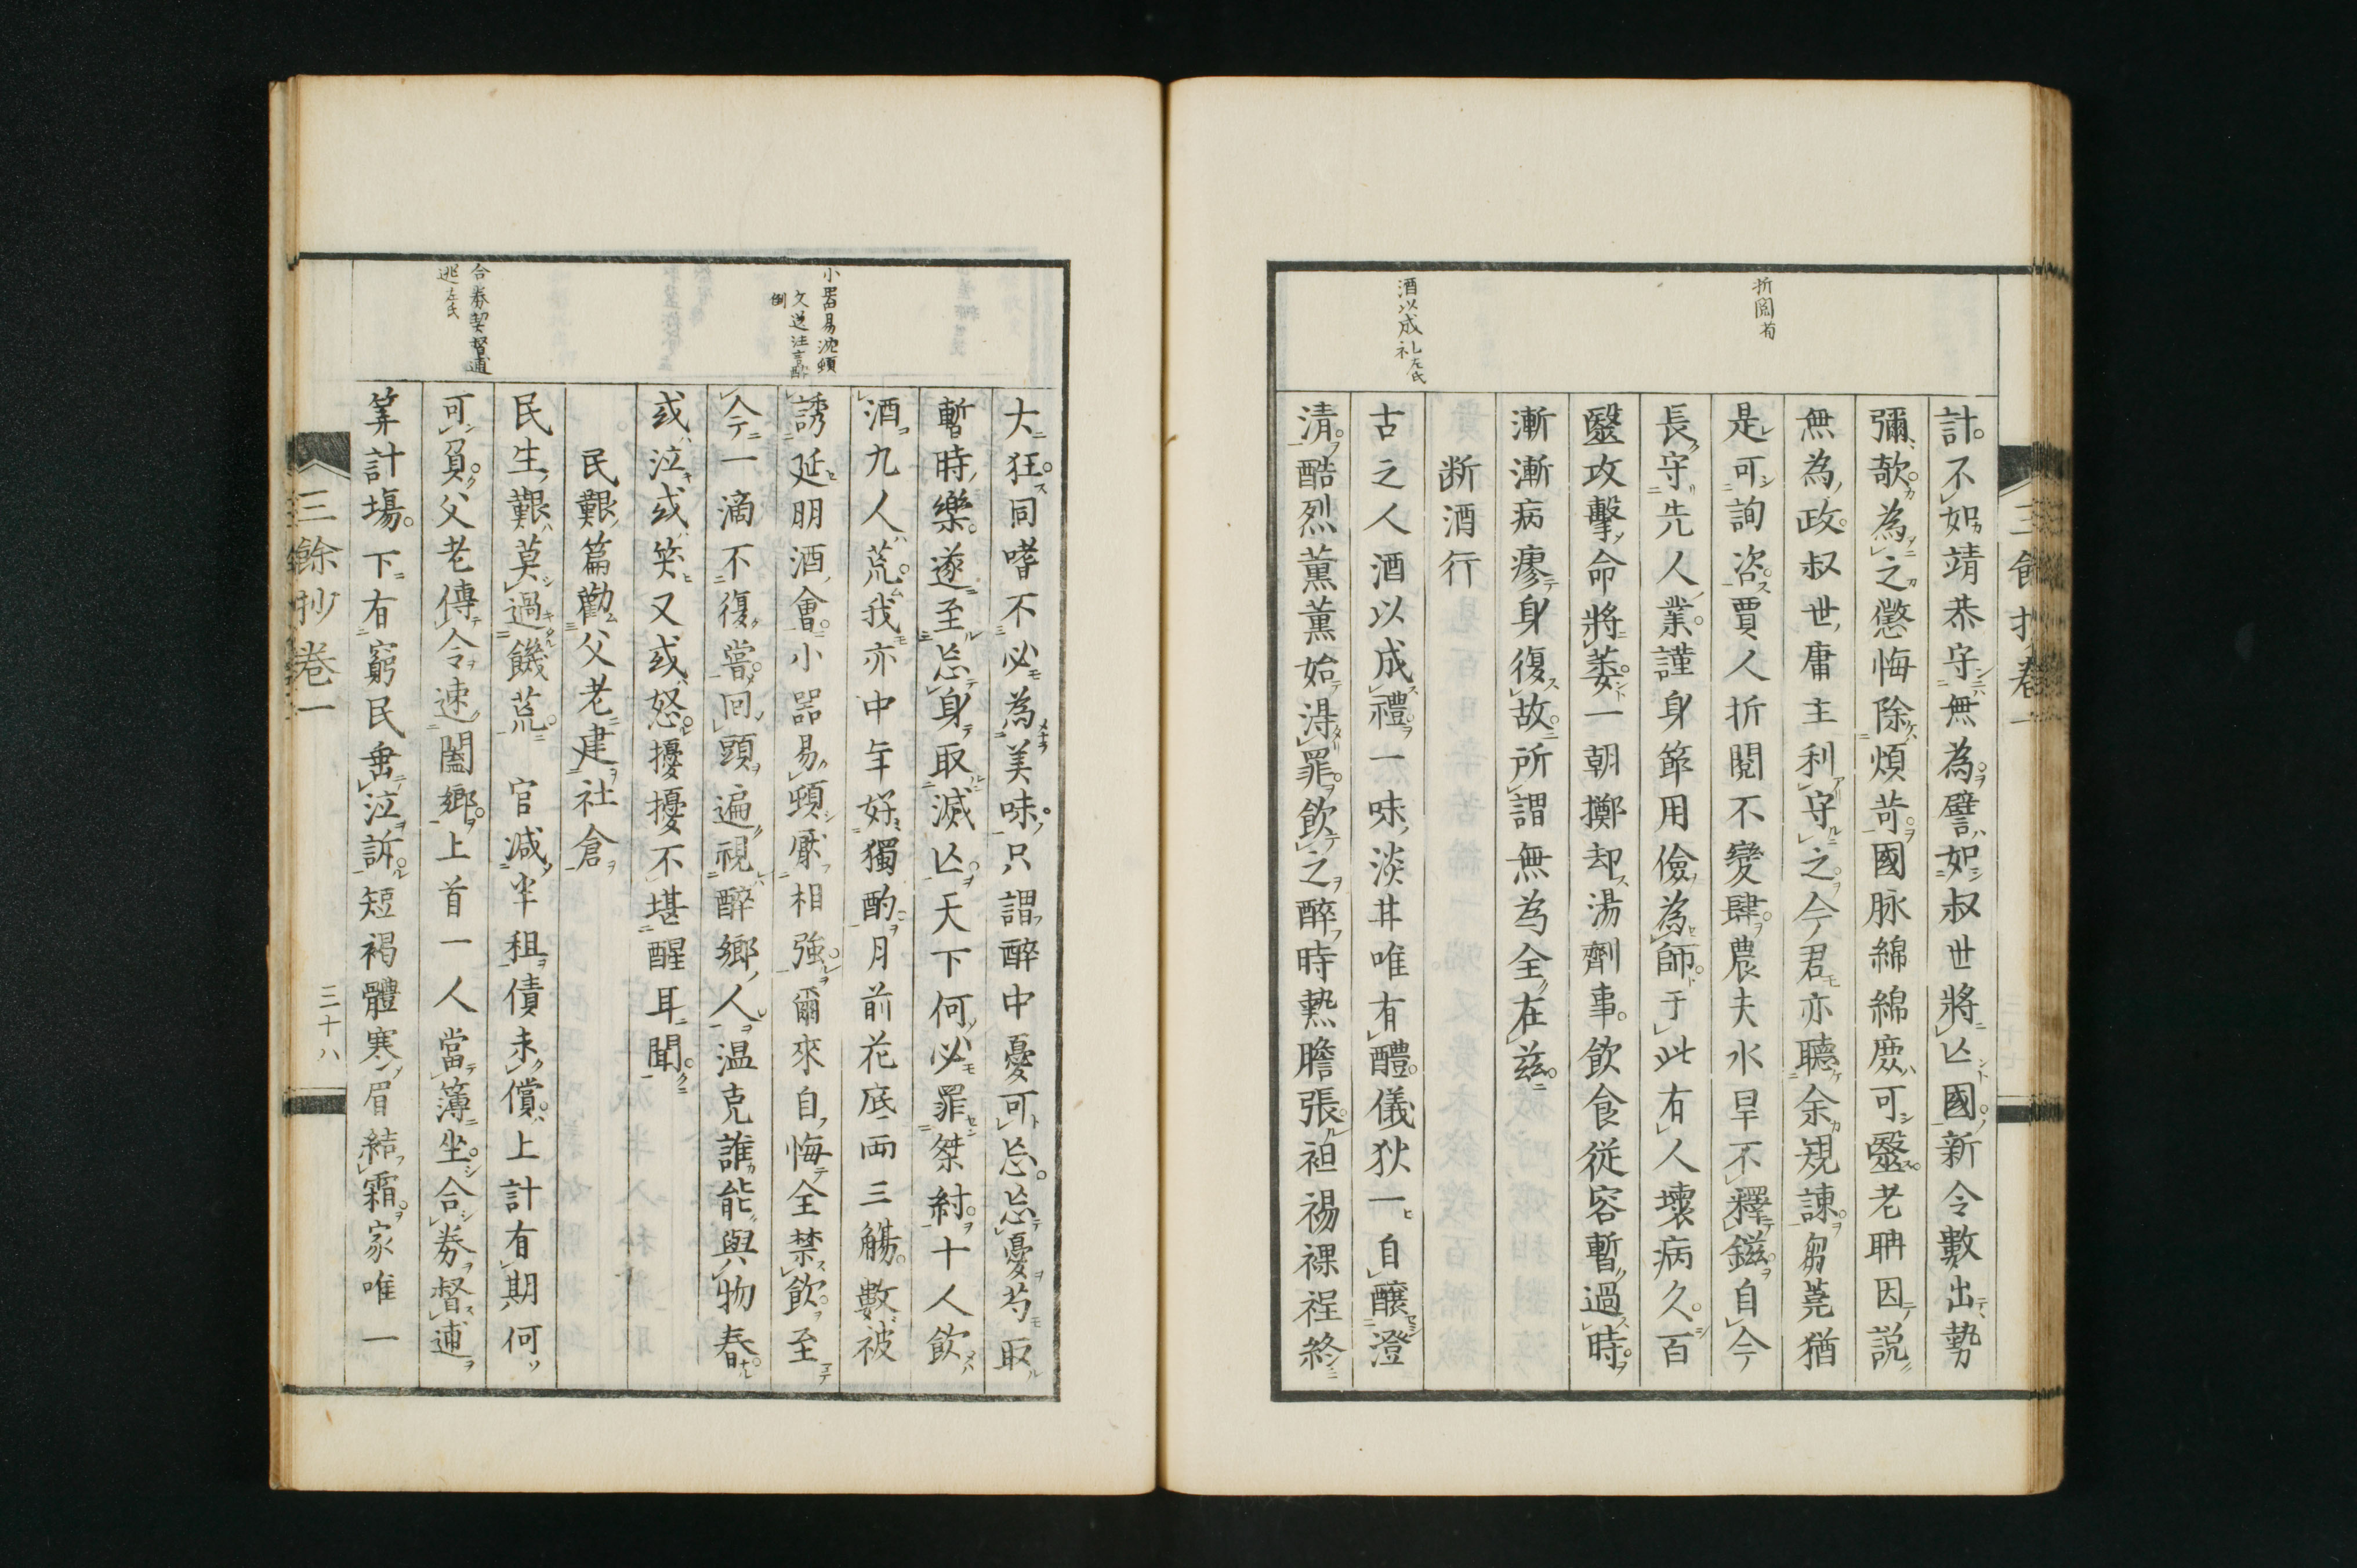 折閲荀
酒以成礼左氏
計不如靖恭守無為譬如叔世將亡國新令數出勢
彌欹為之懲悔除煩苛國脉綿綿庶可毉老聃因說
無為政叔世庸主利守之今君亦聽余規諫芻蕘猶
是可詢咨賈人折閱不變肆農夫水旱不釋鎡自今
長守先人業謹身節用儉為師于此有人壞病久百
毉攻擊命將萎一朝擲却湯劑事飲食従容暫過時
漸漸病瘳身復故所謂無為全在茲
断酒行
古之人酒以成禮一味淡井唯有醴儀狄一自醸澄
清酷烈薫薫始淂罪飲之醉時熱膽張袒裼裸裎終
三餘抄卷一
小器易沈頓
文選注言醉
倒
合券契督逋
逃左氏
大狂同嗜不必為美味只謂醉中憂可忘忘憂芍取
暫時樂遂至忘身取滅亡天下何必罪桀紂十人飲
酒九人荒我亦中年好獨酌月前花底両三觴數被
誘延朋酒會小器易頓厭相強爾來自悔全禁飲至
今一滴不復嘗回頭遍視醉鄉人温克誰能與物春
或泣或笑又或怒擾擾不堪醒耳聞
民艱篇勸父老建社倉
民生艱莫過饑荒　官減半租債未償上計有期何
可負父老傳令速闔鄉上首一人當簿坐合券督逋
筭計塲下有窮民垂泣訴短褐體寒眉結霜家唯一
三餘抄卷一
三十八